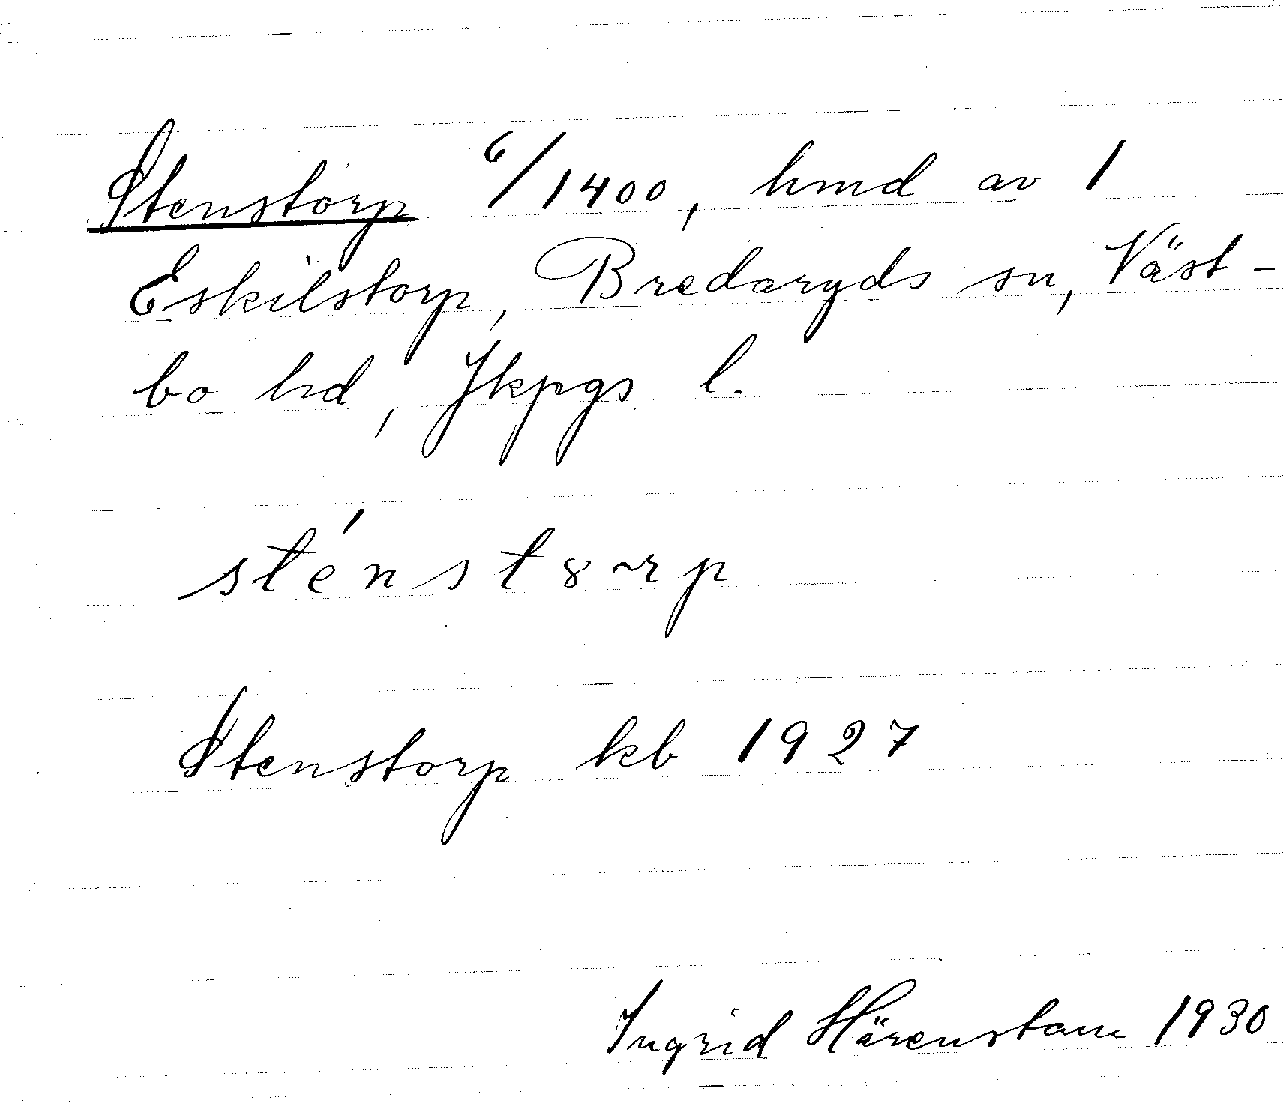 Stenstorp 6/1400, hmd av 1
Eskilstorp, Bredaryds sn, Väst-
bo hd, Jkpgs l.
sténst8~rp
Stenstorp kb 1927
Ingrid Härenstam 1930